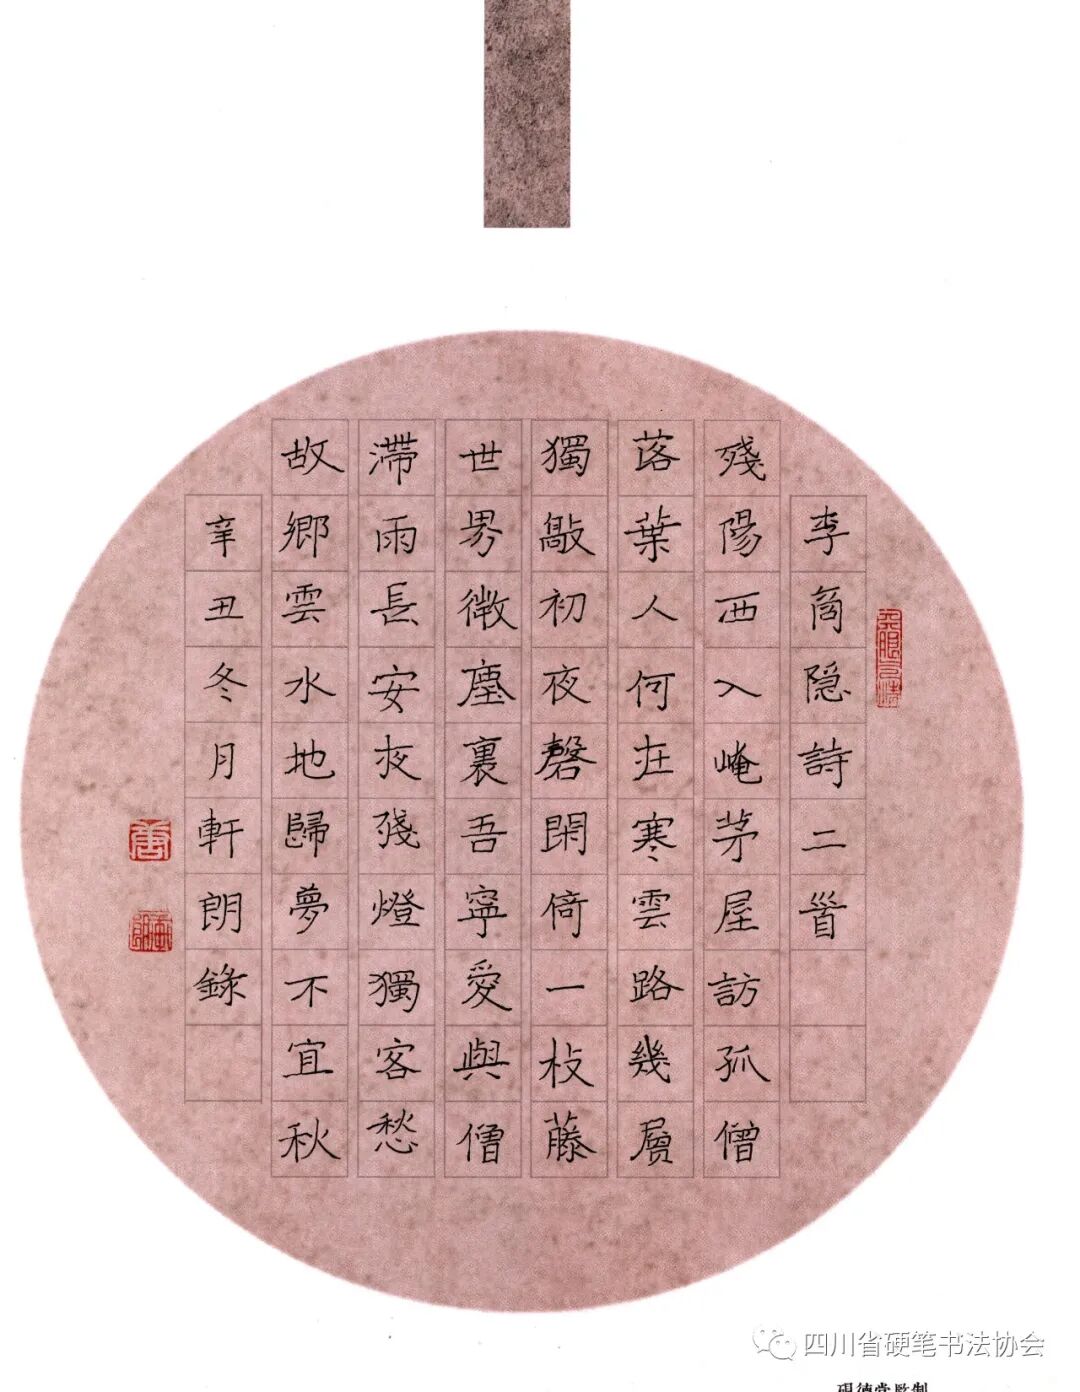 李商隐詩二首
殘陽西入崦茅屋訪孤僧
落葉人何在寒雲路幾層
獨敲初夜磬閑倚一枝藤
世界微塵裏吾寧愛與僧
滯雨長安夜殘燈獨客愁
故鄉雲水地歸夢不宜秋
辛丑冬月軒朗錄
唐
四川省硬笔书法协会